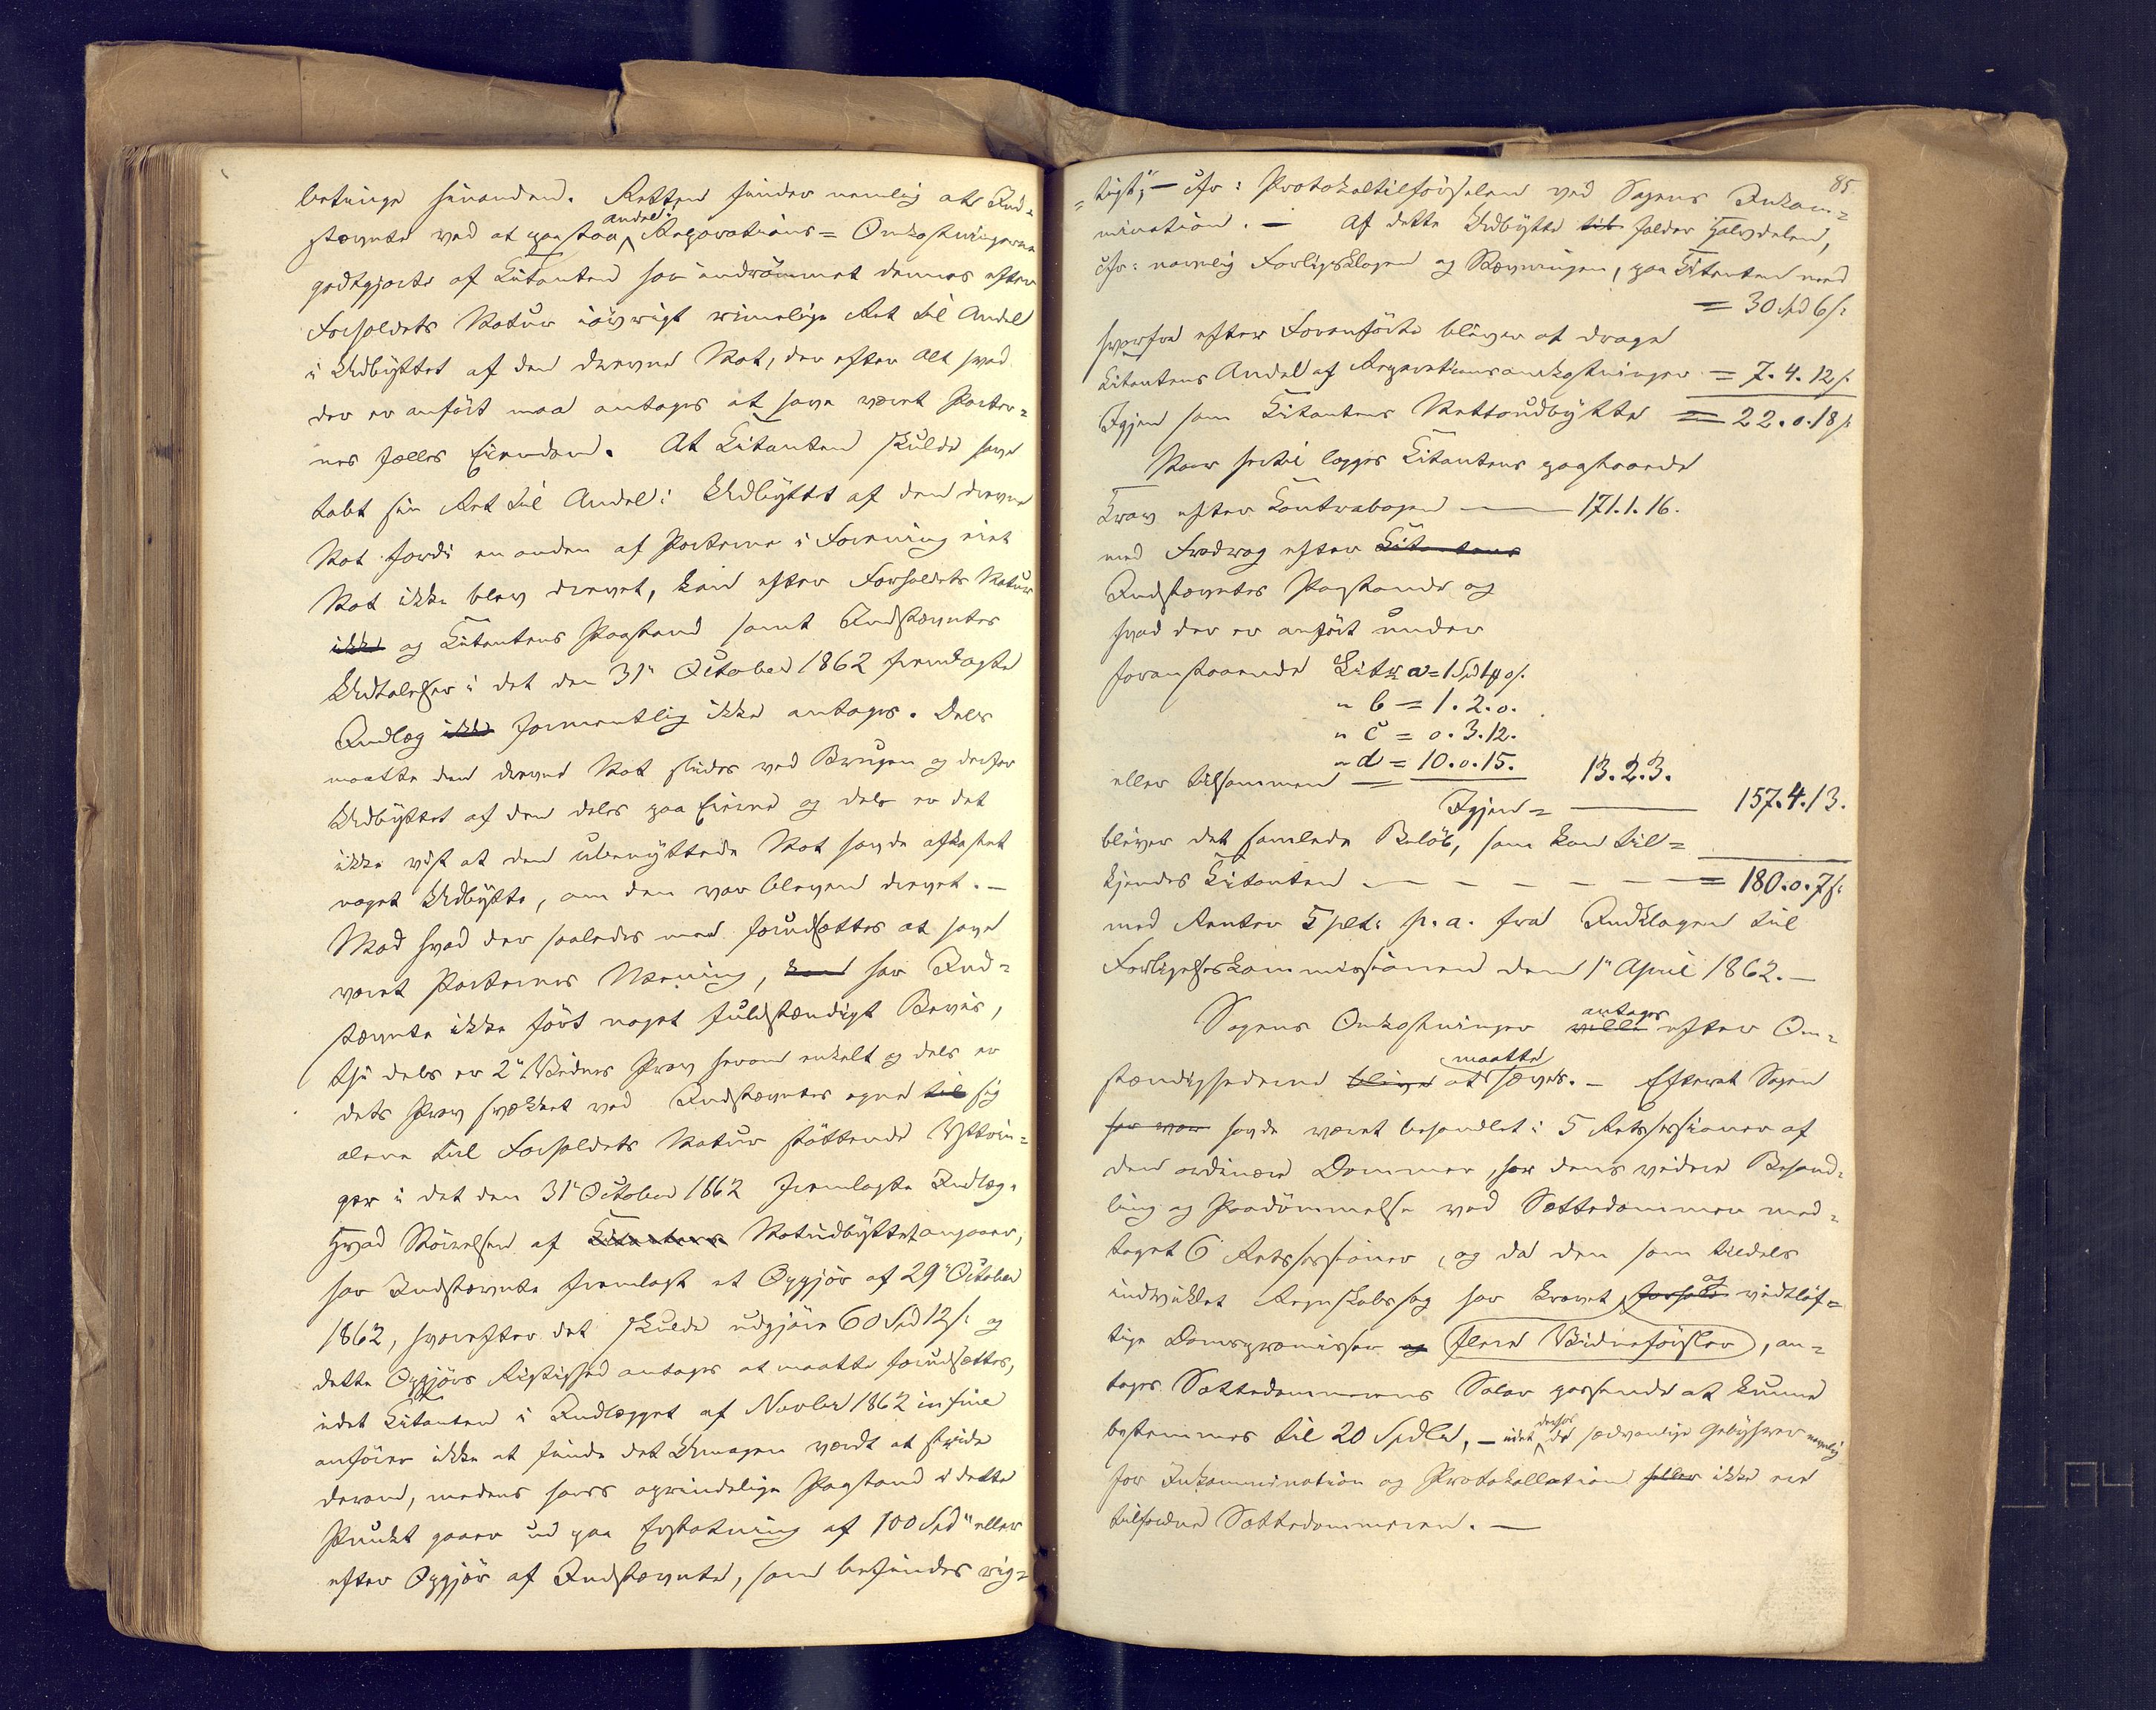 betinge hinanden. Retten finder nemlig at Ind-
stævnte ved at paastaa andel i Reparations= Omkostningerne
godtgjorte af Citanten har indrømmet dennes efter
Forholdets Natur iøvrigt rimelige Ret til Andel
i Udbyttet af den drevne Not, der efter Alt hvad
der er anført maa antages at have været Parter=
nes fælles Eiendom. At Citanten skulde have
tabt sin Ret til Andel i Udbyttet af den drevne
Not fordi en anden af Parterne i Forening eiet
Not ikke blev drevet, kan efter Forholdets Natur
ikke og Citantens Paastand samt Indstævntes
Udtalelser i det den 31te October 1862 fremlagte
Indlæg ikke formentlig ikke antages. Dels
maatte den drevne Not slides ved Brugen og derfor
Udbyttet af den deles paa Eierne og dels er det
ikke vist at den ubenyttede Not havde afkastet
noget Udbytte, om den var bleven drevet. —
Mod hvad der saaledes maa forudsættes at have
været Parternes Mening, kan har Ind=
stævnte ikke ført noget fuldstændigt Beviis,
thi dels er 2det Vidnes Prov herom enkelt og dels er
dets Prov svækket ved Indstævntes egne til sig
alene til Forholdets Natur støttende Yttrin=
ger i det den 31te October 1862 fremlagte Indlæg.
Hvad Størrelsen af Citantens Notudbyttet angaaer,
har Indstævnte fremlagt et Opgjør af 29de October
1862, hvorefter det skulde udgjøre 60 Spd 12 s: og
dette Opgjørs Rigtighed antages at maatte forudsættes,
idet Citanten i Indlægget af Novbr 1862 in fine
anfører ikke at finde det Umagen værdt at stride
derom, medens hans oprindelige Paastand i dette
Punkt gaaer ud paa Erstatning af 100 Spd "eller
efter Opgjør af Indstævnte, som befindes rig=
85.
=tigt", — cfr: Protokoltilførselen ved Sagens Inkam=
mination. — Af dette Udbytte til falder Halvdelen,
cfr: navnlig Forligsklagen og Stævningen, paa Citanten med
= 30 Spd 6 s:
hvorfra efter Foranførte bliver at drage
Citantens Andel af Reparationsomkostninger = 7. 4. 12 s.
Igjen som Citantens Nettoudbytte = 22. 0. 18 s.
Naar hertil lægges Citantens paastaaede
Krav efter Contrabogen — 171. 1. 16.
med Fradrag efter Citantens
Indstævntes Paastande og
hvad der er anført under
foranstaaende Litr a = 1 Spd 1 0 s.
" b = 1. 2. 0.
" c = 0. 3. 12.
" d = 10. 0. 15.
eller tilsammen = 13. 2. 3.
Igjen = — 157. 4. 13.
bliver det samlede Beløb, som kan til=
kjendes Citanten — — — — — = 180. 0. 7 s:
med Renter 5 pCt. p. a. fra Indklagen til
Forligelseskommissionen den 1ste April 1862. —
Sagens Omkostninger ville antages efter Om=
stændighederne blive maatte at hæves. — Efterat Sagen
har vær havde været behandlet i 5 Retssessioner af
den ordinære Dommer, har dens videre Behand=
ling og Paadømmelse ved Sættedommer med=
taget 6 Retssessioner, og da den som tildels
indviklet Regnskabssag har krævet forholds og vidtløf=
tige Domspræmisser og flere Vidneførsler, an=
tages Sættedommerens Salær passende at kunne
bestemmes til 20 Spdlr, — idet derhos de sædvanlige Gebyhrer navnlig
for Inkammination og Protokollation heller ikke ere
tilfaldne Sættedommeren. —